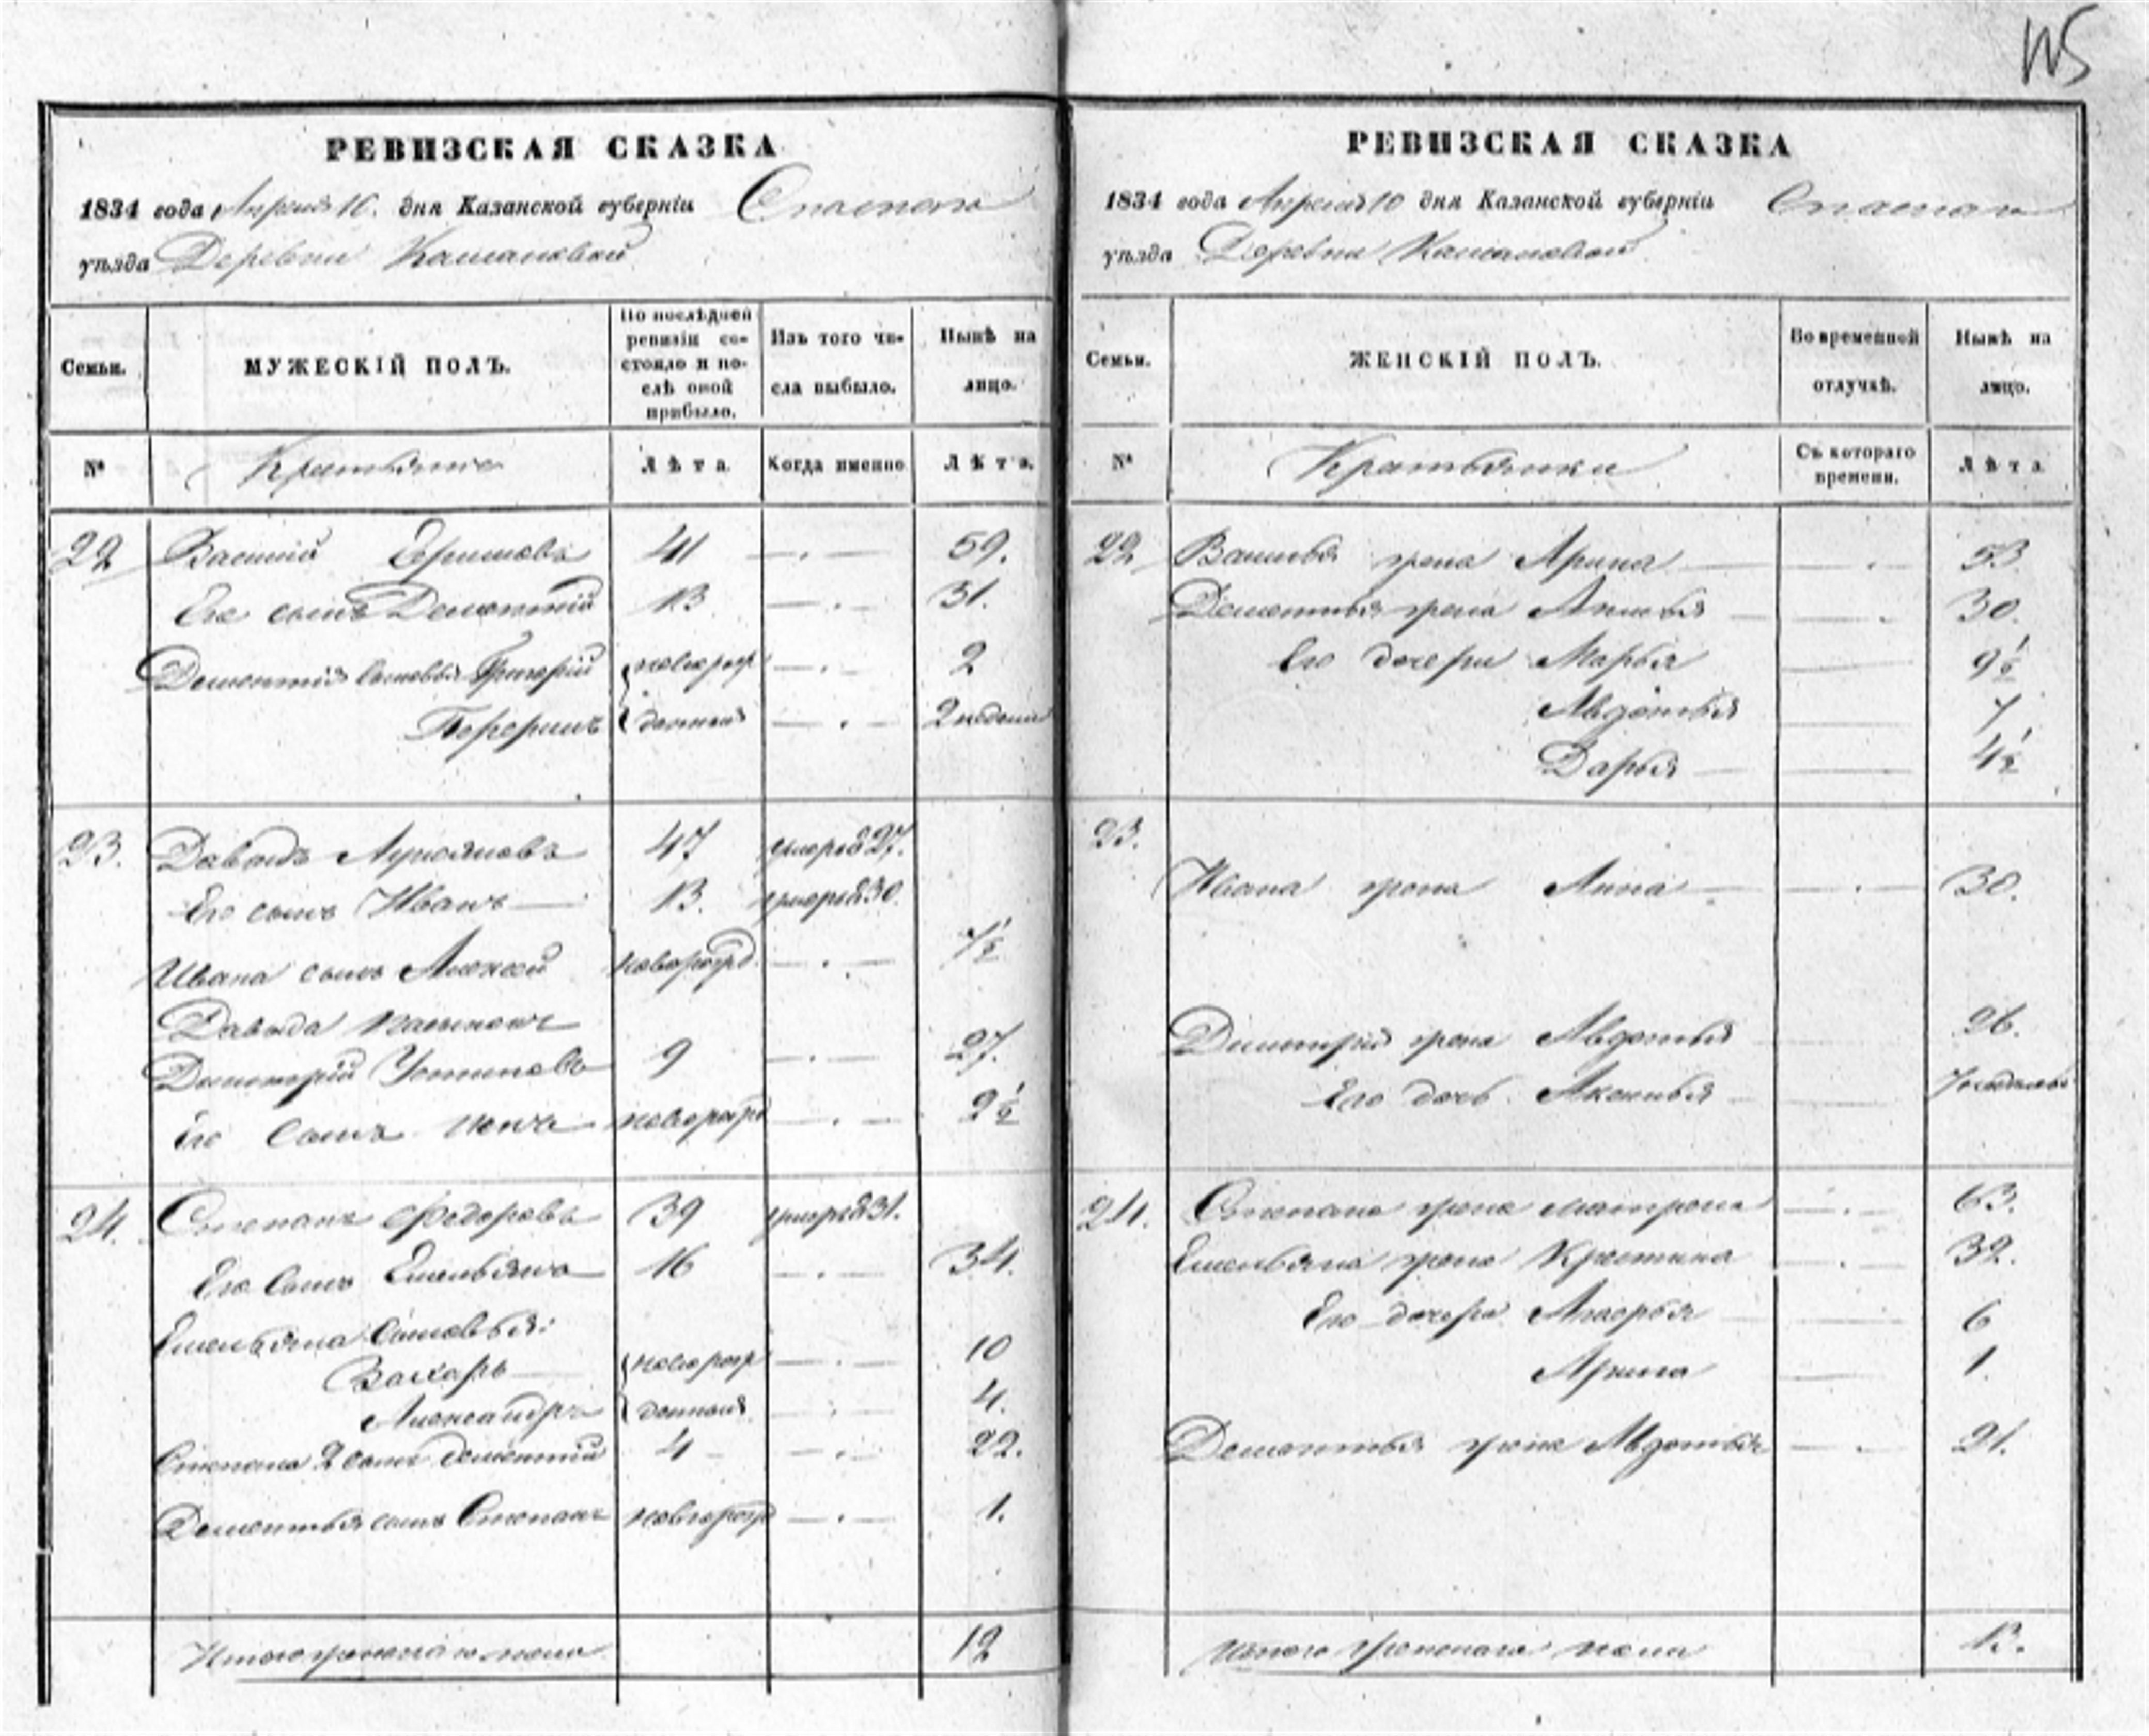 115
РЕВИЗСКАЯ СКАЗКА
1834 года Апреля 10. дня Казанской губернiи Спаскаго
уѣзда Деревни
Семьи.
МУЖЕСКIЙ ПОЛЪ.
По послѣдней ревизiи состояло и послѣ оной прибыло.
Изъ того числа выбыло.
Нынѣ на лицо.
№
Крестьяне
Лѣта.
Когда именно
Лѣта.
22 Василiй Ефимовъ 41 59.
Его сынъ Дементiй 13 31.
Дементiя сыновья Григорiй новорож 2
денныя 2 недели
23. Давыдъ Лукояновъ 47 умеръ в 27.
Его сынъ Иванъ 13. умеръ в 30.
Ивана сынъ Алексей новорожд. 7½
Давыда пасынокъ
Димитрiй Устиновъ 9 27.
Его сынъ новорожд 2½
24. Степанъ Федоровъ 39 умеръ в 31.
Его сынъ Емельянъ 16 34.
Емельяна сыновья:
Захаръ новорож 10
Александръ денныя 4.
Степана 2 сынъ Дементiй 4 22.
Дементья сынъ Степанъ новорожд 1.
Итого мужескаго пола 12
РЕВИЗСКАЯ СКАЗКА
1834 года Апреля 10 дня Казанской губернiи Спаскаго
уѣзда Деревни
Семьи.
ЖЕНСКIЙ ПОЛЪ.
Во временной отлучкѣ.
Нынѣ на лицо.
№
Крестьянки
Съ котораго времени.
Лѣта
22 Василья жена Арина 53.
Дементья жена 30.
Его дочери Марья 9½
Авдотья 7
Дарья 4½
23.
Ивана жена Анна 30.
Димитрiя жена Авдотья 26.
Его дочь Аксинья 7 недель
24. Степана жена Матрена 63.
Емельяна жена Крестина 32.
Его дочери 6
Арина 1.
Дементья жена Авдотья 21.
Итого женскаго пола 13.